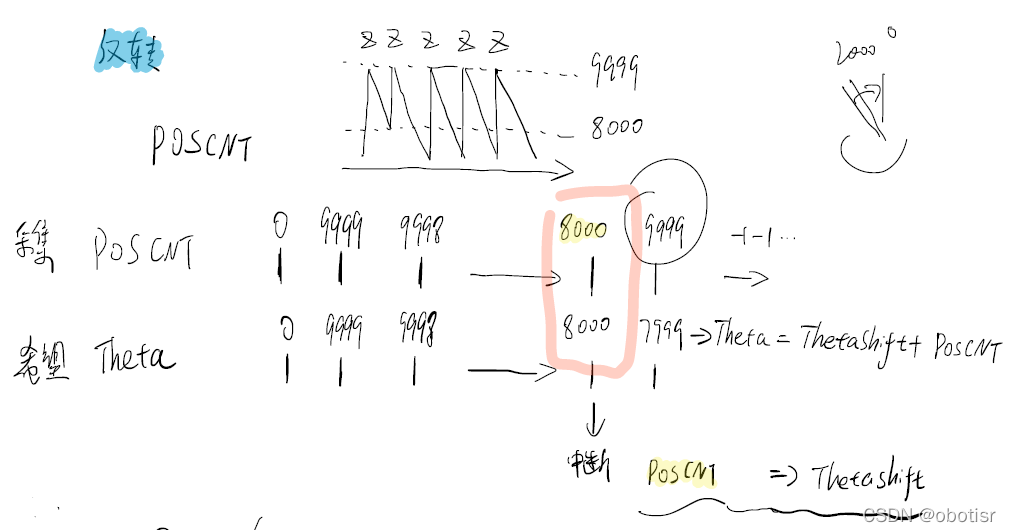 反转
Z Z Z Z Z
9999
8000
2000°
POSCNT
采集 POSCNT 0 9999 9998 8000 9999 -1-1...
希望 Theta 0 9999 9998 8000 7999 → Theta = ThetaShift + POSCNT
中断 POSCNT => Thetashift
CSDN @obotisr